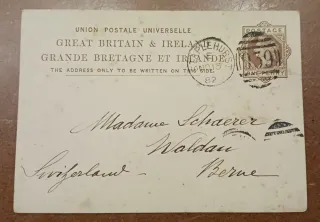 UNION POSTALE UNIVERSELLE
GREAT BRITAIN & IRELAND
GRANDE BRETAGNE ET IRLANDE
THE ADDRESS ONLY TO BE WRITTEN ON THIS SIDE.
POSTAGE
PENNY
87
Madame Schaerer
Waldau
Berne
Switzerland